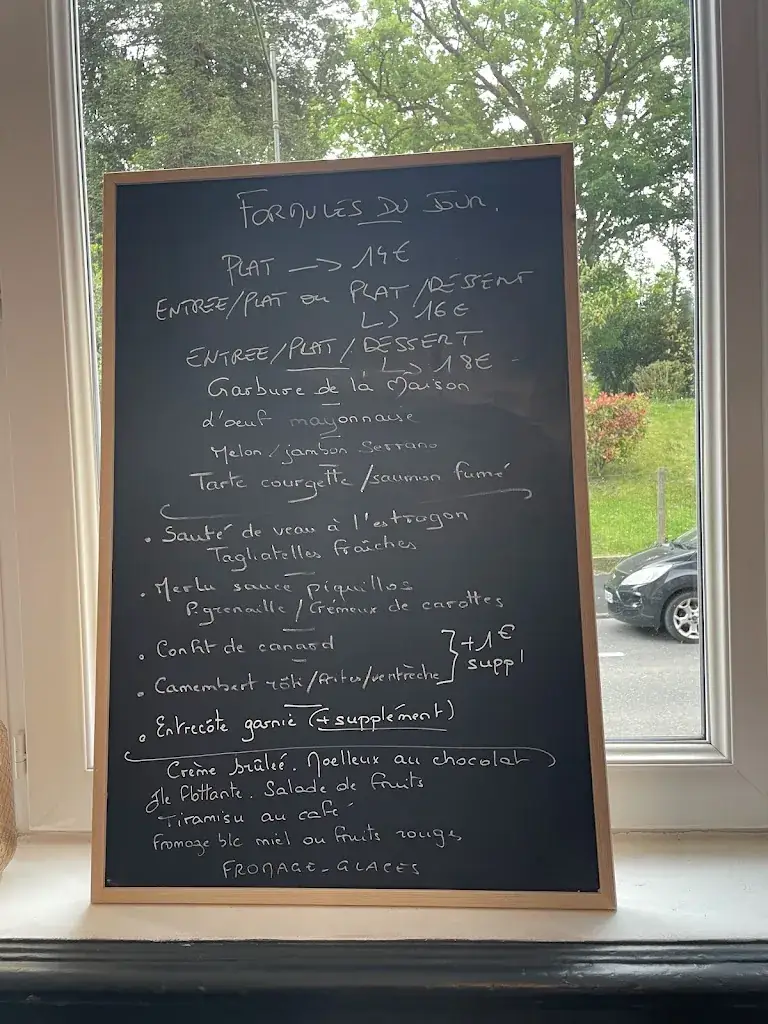 FORMULES DU JOUR.
PLAT —> 14€
ENTREE/PLAT ou PLAT/DESSENT
↳ 16€
ENTREE/PLAT/DESSERT
↳ 18€
Garbure de là Maison
d'oeuf mayonnaise
Melon/jambon Serrano
Tarte courgette/saumon fumé
. Sauté de veau à l'estragon
Tagliatelles fraîches
. Merlu sauce piquillos
P.grenaille/Crémeux de carottes
. Confit de canard
. Camembert rôti/frites/ventrèche } +1€ suppl
. Entrecôte garnie (+supplément)
Crème brûleé. Moelleux au chocolat
Ile flottante. Salade de fruits
Tiramisu au café
Fromage blc miel ou fruits rouges
FROMAGE - GLACES